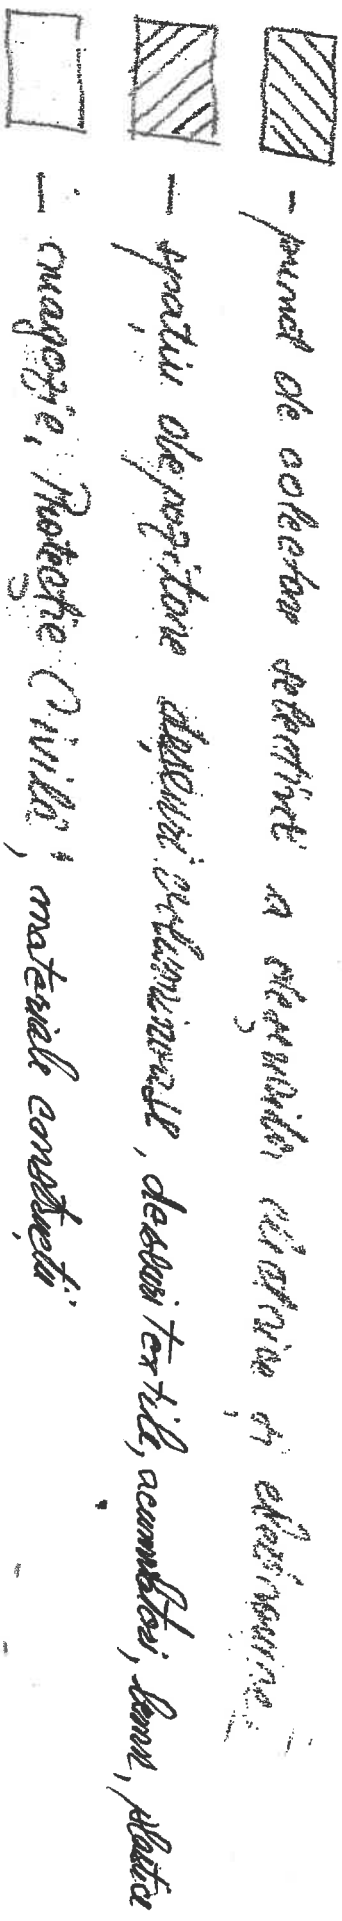 - punct de colectare selectivă a deșeurilor electrice și electronice
- spații depozitare deșeuri voluminoase, deseuri textile, acumulatori, lemn, plastice
- magazie, Protecție Civilă, materiale construcții